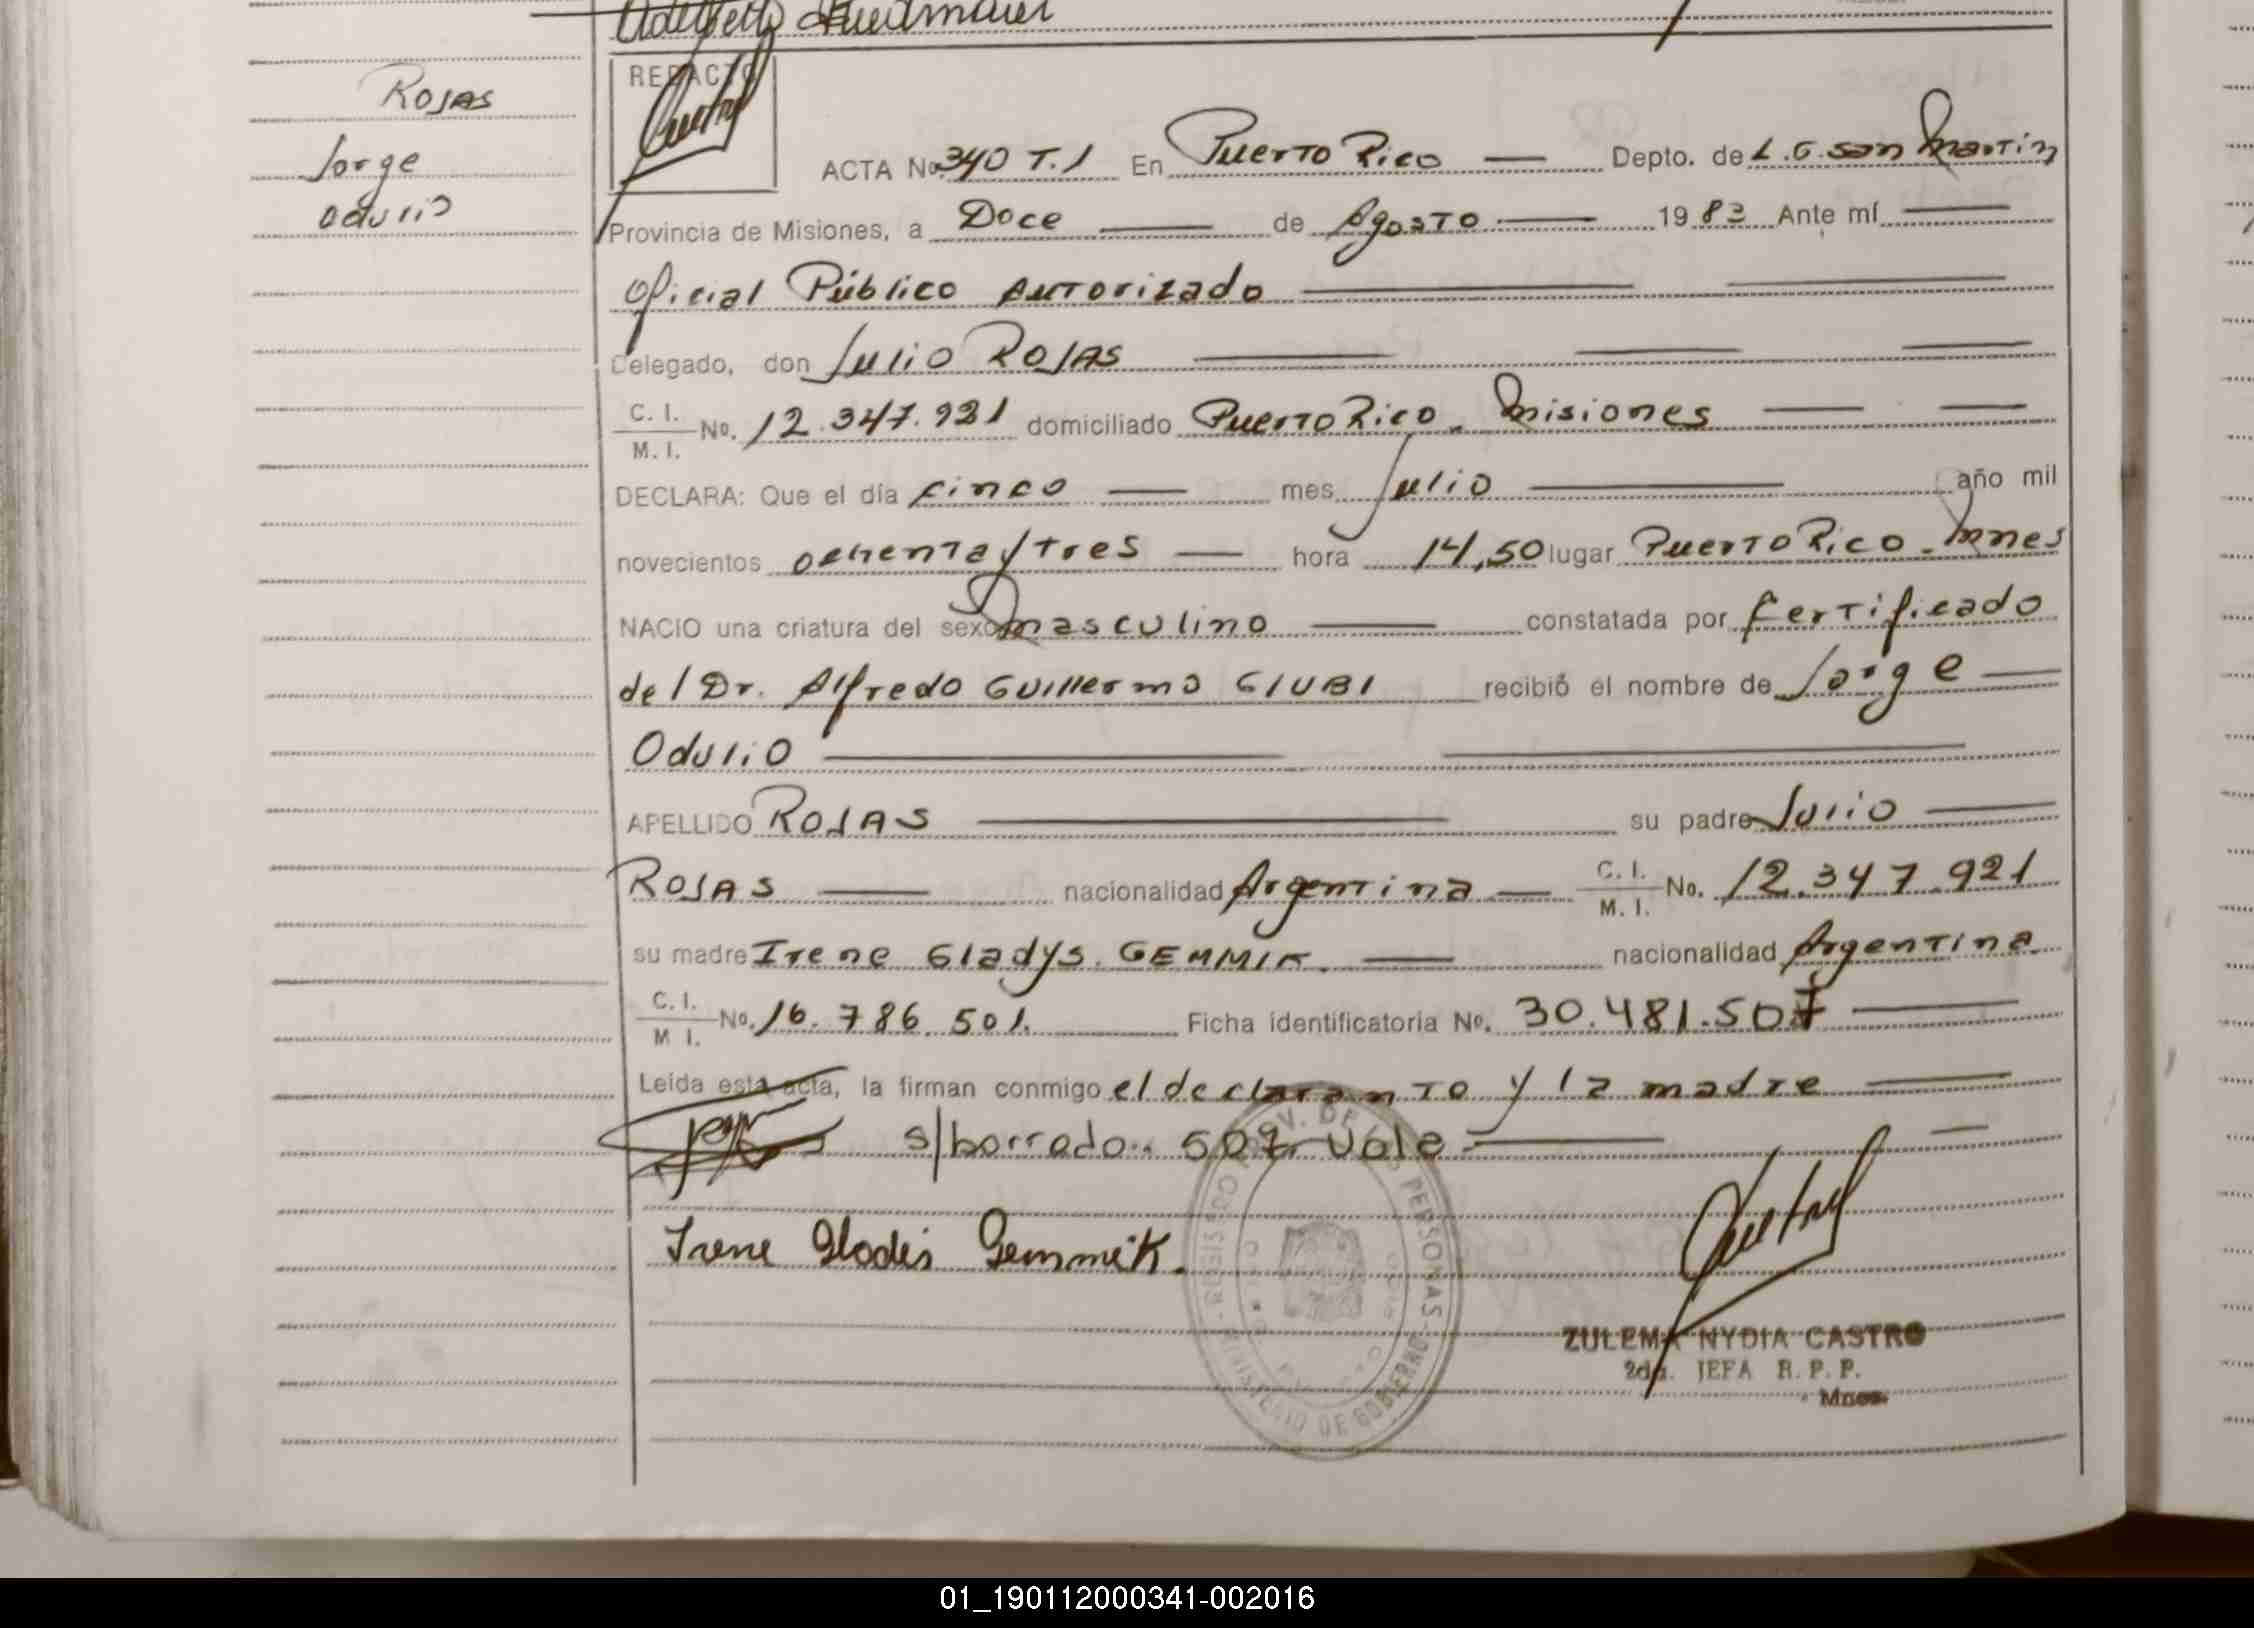 Rojas
Jorge
Odulio
REDACTO
ACTA No. 340 T.1 En Puerto Rico Depto. de L.G. San Martín
Provincia de Misiones, a Doce de Agosto 1983 Ante mí
Oficial Público Autorizado
Delegado, don Julio ROJAS
C. I. M. I. No. 12.347.921 domiciliado Puerto Rico. Misiones
DECLARA: Que el día cinco mes Julio año mil
novecientos ochenta y tres hora 14,50 lugar Puerto Rico - Mnes
NACIO una criatura del sexo masculino constatada por certificado
del Dr. Alfredo Guillermo GIUBI recibió el nombre de Jorge
Odulio
APELLIDO ROJAS su padre Julio
ROJAS nacionalidad Argentina C. I. M. I. No. 12.347.921
su madre Irene Gladys. GEMMIK. nacionalidad Argentina
C. I. M I. No. 16.786.501. Ficha identificatoria No. 30.481.507
Leída esta acta, la firman conmigo el declaranto y la madre
s/borrado.. 507 Vale
Irene Glodis Gemmik.
ZULEMA NYDIA CASTRO
2da. JEFA R. P. P.
Mnes.
REGISTRO PROV. DE LAS PERSONAS - MINISTERIO DE GOBIERNO
01_190112000341-002016